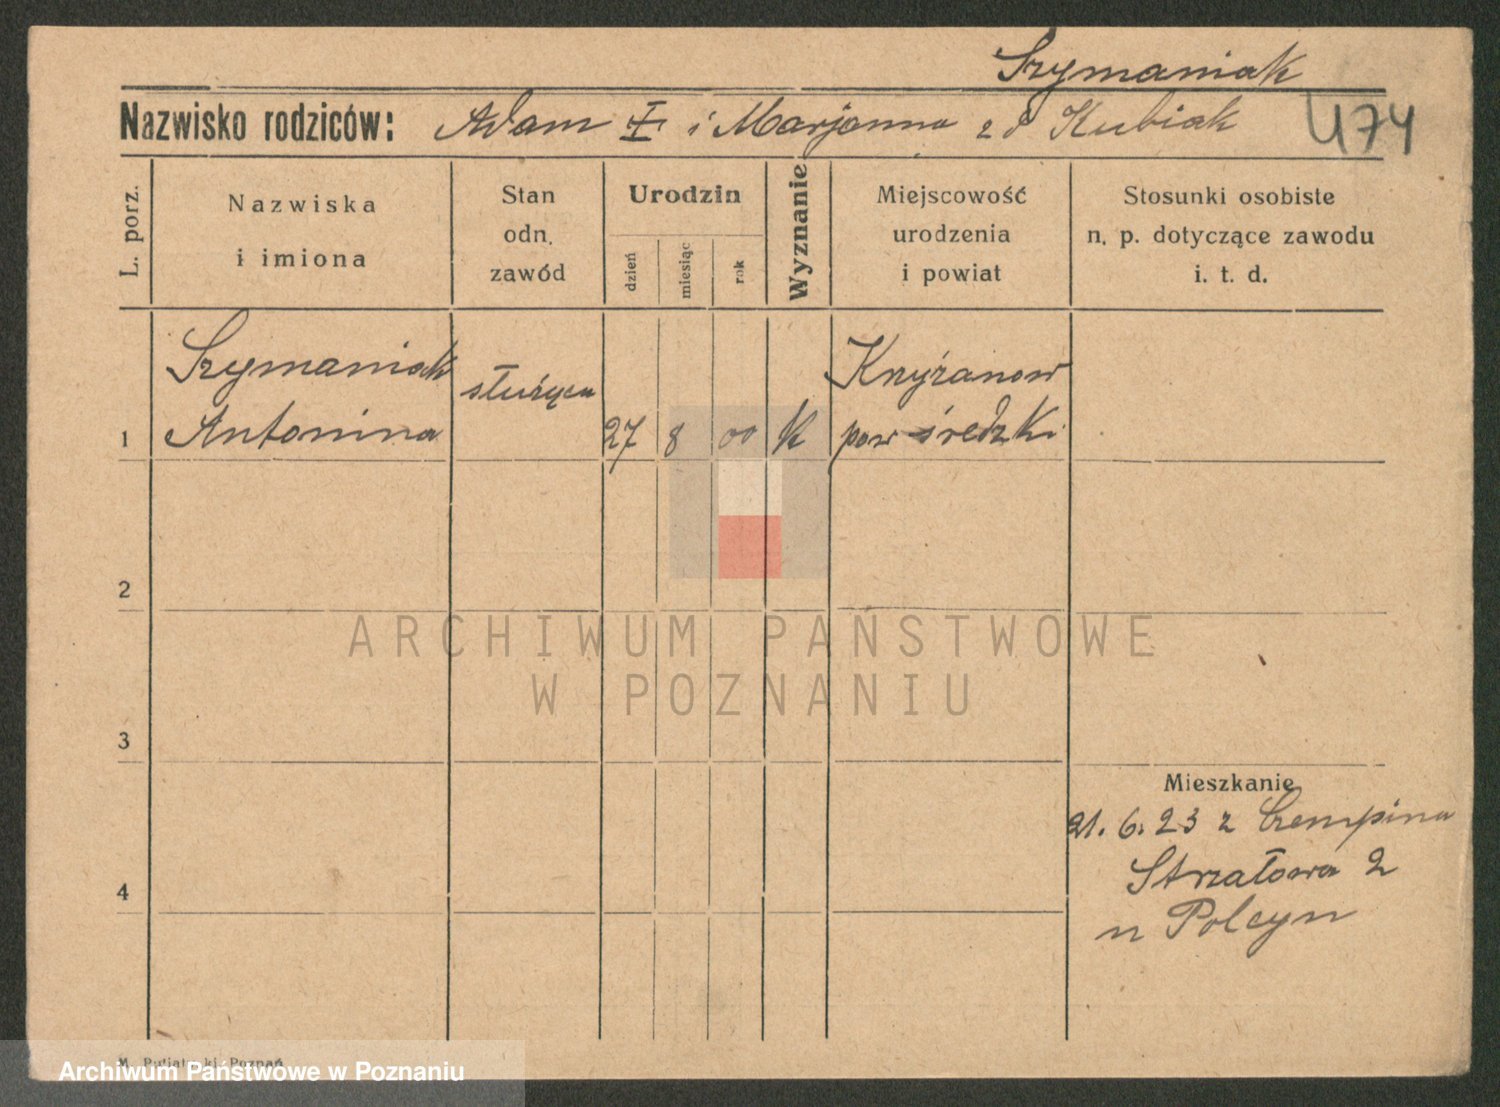 Szymaniak
Nazwisko rodziców: Adam i Marjanna zd Kubiak
474
L. porz.
Nazwiska
i imiona
Stan
odn.
zawód
Urodzin
dzień
miesiąc
rok
Wyznanie
Miejscowość
urodzenia
i powiat
Stosunki osobiste
n. p. dotyczące zawodu
i. t. d.
Szymaniak służąca Knyżanow
1 Antonina 27 8 00 k pow średzki
2
ARCHIWUM PAŃSTWOWE
W POZNANIU
3
Mieszkanie
21. 6. 23 z Czempina
4 Strzałowa 2
u Polcyn
M. Poznań
Archiwum Państwowe w Poznaniu